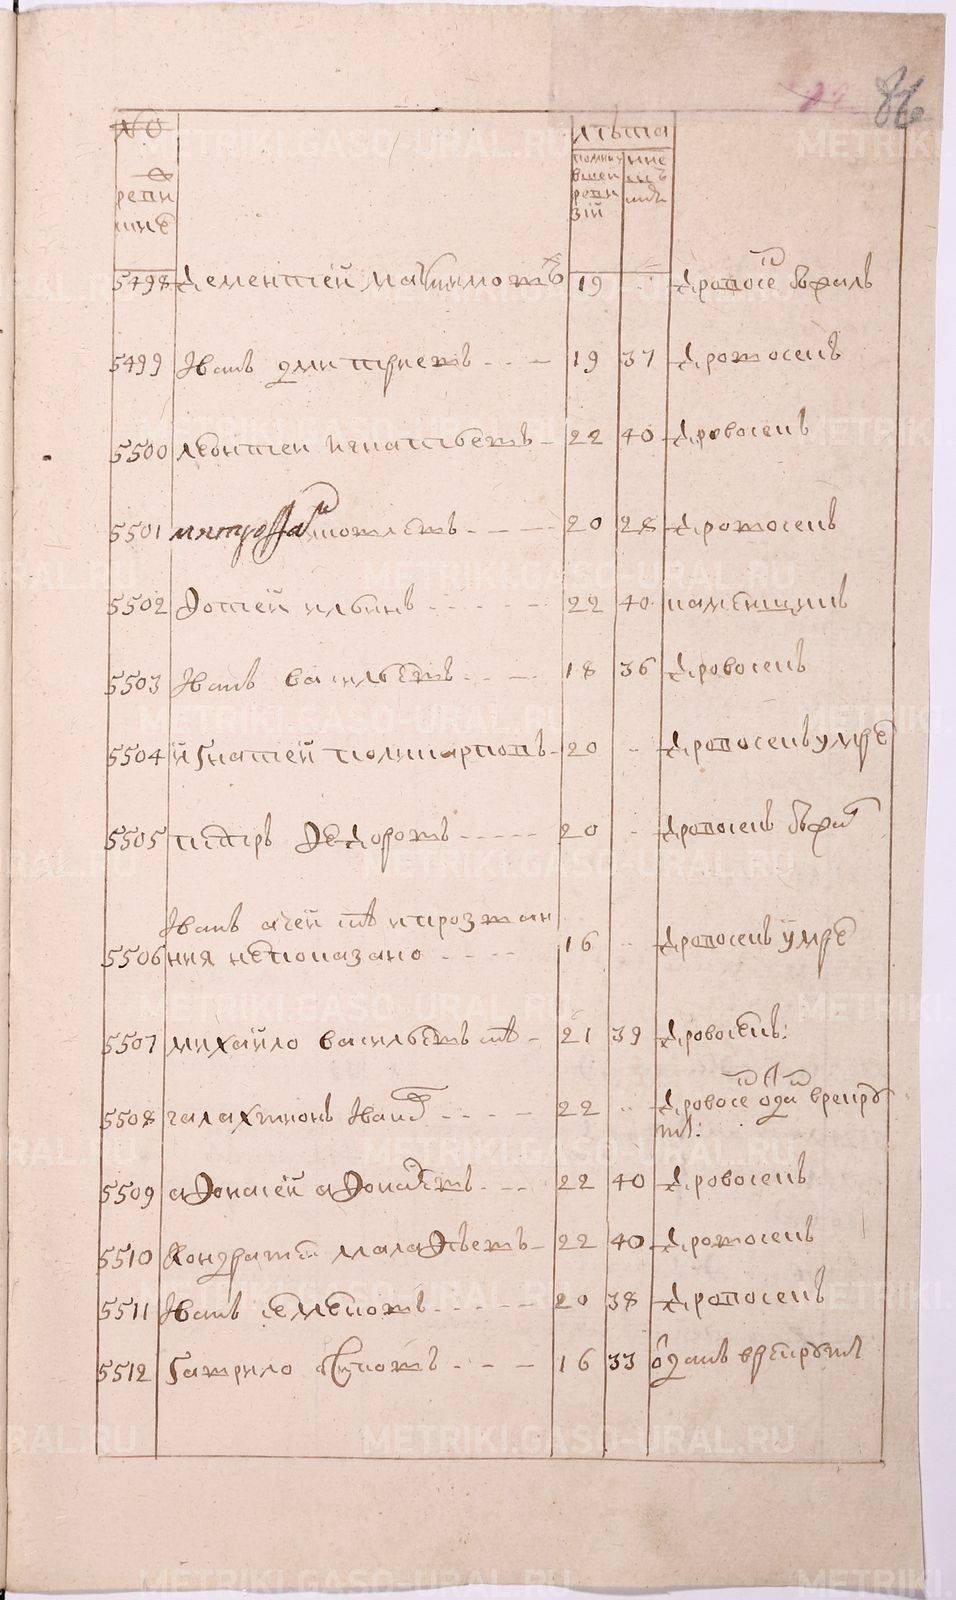 86
№
в
реви
зиѣ
лѣта
по ны
вшей
реви
зiй
5498 Дементей 19 дровосе бежалъ
5499 Iванъ Дмитриевъ 19 37 дровосекъ
5500 Леонтей Игнатьевъ 22 40 дровосекъ
5501 митрофа 20 28 дровосекъ
5502 Фотей Ильинъ 22 40 каменщикъ
5503 Iванъ Васильевъ 18 36 дровосекъ
5504 Игнатей 20 дровосекъ умре
5505 петръ Федоровъ 20 дровосекъ бежа
Iванъ а чей и прозван
5506 ния непоказано 16 дровосекъ умре
5507 михайло Васильевъ 21 39 дровосекъ:
5508 галахтионъ Iвано 22 дровосе одан в рекру
ты:
5509 афонасей афонасевъ 22 40 дровосекъ
5510 Кондратей малафѣевъ 22 40 дровосекъ
5511 Iванъ семеновъ 20 38 дровосекъ
5512 гаврило 16 33 оданъ в рекруты
METRIKI.GASO-URAL.RU